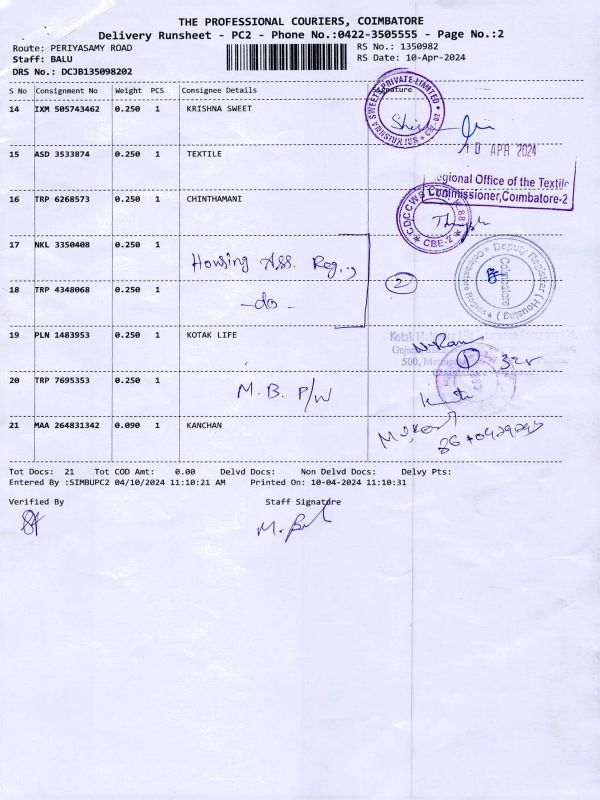 THE PROFESSIONAL COURIERS, COIMBATORE
Delivery Runsheet - PC2 - Phone No.:0422-3505555 - Page No.:2
Route: PERIYASAMY ROAD
Staff: BALU
DRS No.: DCJB135098202
RS No.: 1350982
RS Date: 10-Apr-2024
S No Consignment No Weight PCS Consignee Details Signature
14 IXM 505743462 0.250 1 KRISHNA SWEET
SRI KRISHNA SWEETS PRIVATE LIMITED * CBE-02 *
10 APR 2024
15 ASD 3533874 0.250 1 TEXTILE
Regional Office of the Textile
Commissioner, Coimbatore-2
16 TRP 6268573 0.250 1 CHINTHAMANI
* CBE-2 *
17 NKL 3350408 0.250 1 Housing Ass. Reg.,
Deputy Registrar (Housing)
Coimbatore
2
18 TRP 4348068 0.250 1 -do-
19 PLN 1483953 0.250 1 KOTAK LIFE
1
20 TRP 7695353 0.250 1 M.B. P/W
21 MAA 264831342 0.090 1 KANCHAN
Tot Docs: 21 Tot COD Amt: 0.00 Delvd Docs: Non Delvd Docs: Delvy Pts:
Entered By :SIMBUPC2 04/10/2024 11:10:21 AM Printed On: 10-04-2024 11:10:31
Verified By Staff Signature